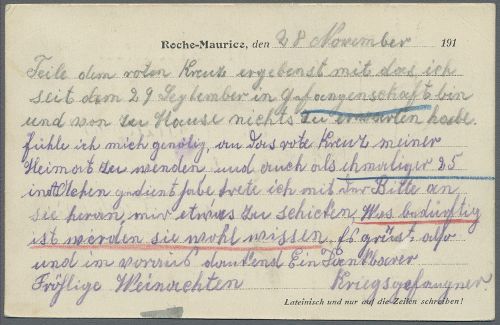 Roche-Maurice, den 28 November 191
Teile dem roten Kreuz ergebenst mit das ich
seit dem 29 September in Gefangenschaft bin
und von zu Hause nichts zu erwarten habe
fühle ich mich genötig, an das rote Kreuz meiner
Heimat zu wenden und auch als ehmaliger 25
gedient habe trete ich mit der Bitte an
sie heran, mir etwas zu schicken, Was bedürftig
ist werden sie wohl wissen. Es grüst, also
und im vorraus dankend Ein Dankbarer
Fröhlige Weinachten Kriegsgefangner.
Lateinisch und nur auf die Zeilen schreiben!